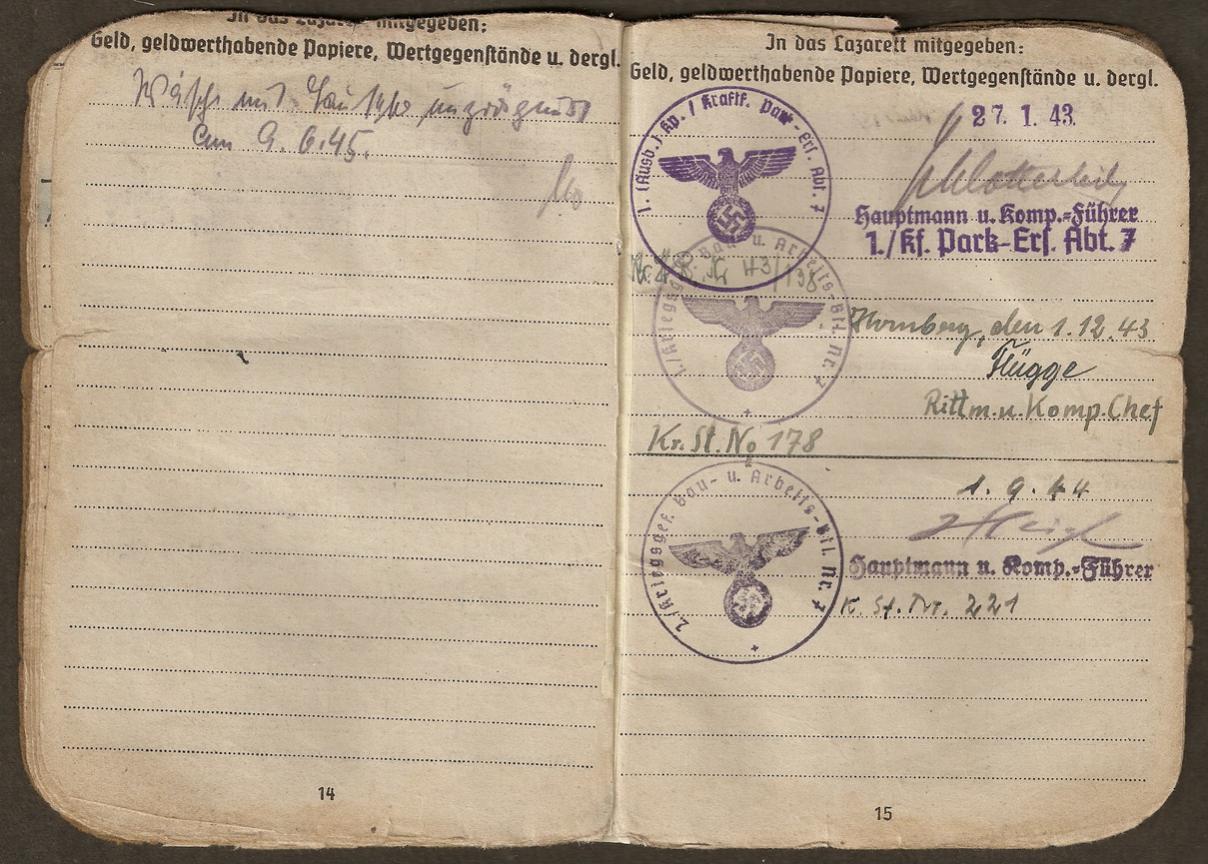 In das Lazarett mitgegeben:
Geld, geldwerthabende Papiere, Wertgegenstände u. dergl.
Wäsche und
am 9. 6. 45.
14
In das Lazarett mitgegeben:
Geld, geldwerthabende Papiere, Wertgegenstände u. dergl.
1. (Ausb.) Kp. / Kraftf. Park-Ers. Abt. 7
27. 1. 43.
Hauptmann u. Komp.-Führer
1./Kf. Park-Ers. Abt. 7
43/138
1./Kriegsgef. Bau- u. Arbeits-Btl. Nr. 7
Hornberg, den 1.12.43
Flügge
Rittm. u. Komp. Chef
Kr. St. No 178
2./Kriegsgef. Bau- u. Arbeits-Btl. Nr. 7
1. 9. 44
Hauptmann u. Komp.-Führer
K. St. Nr. 221
15